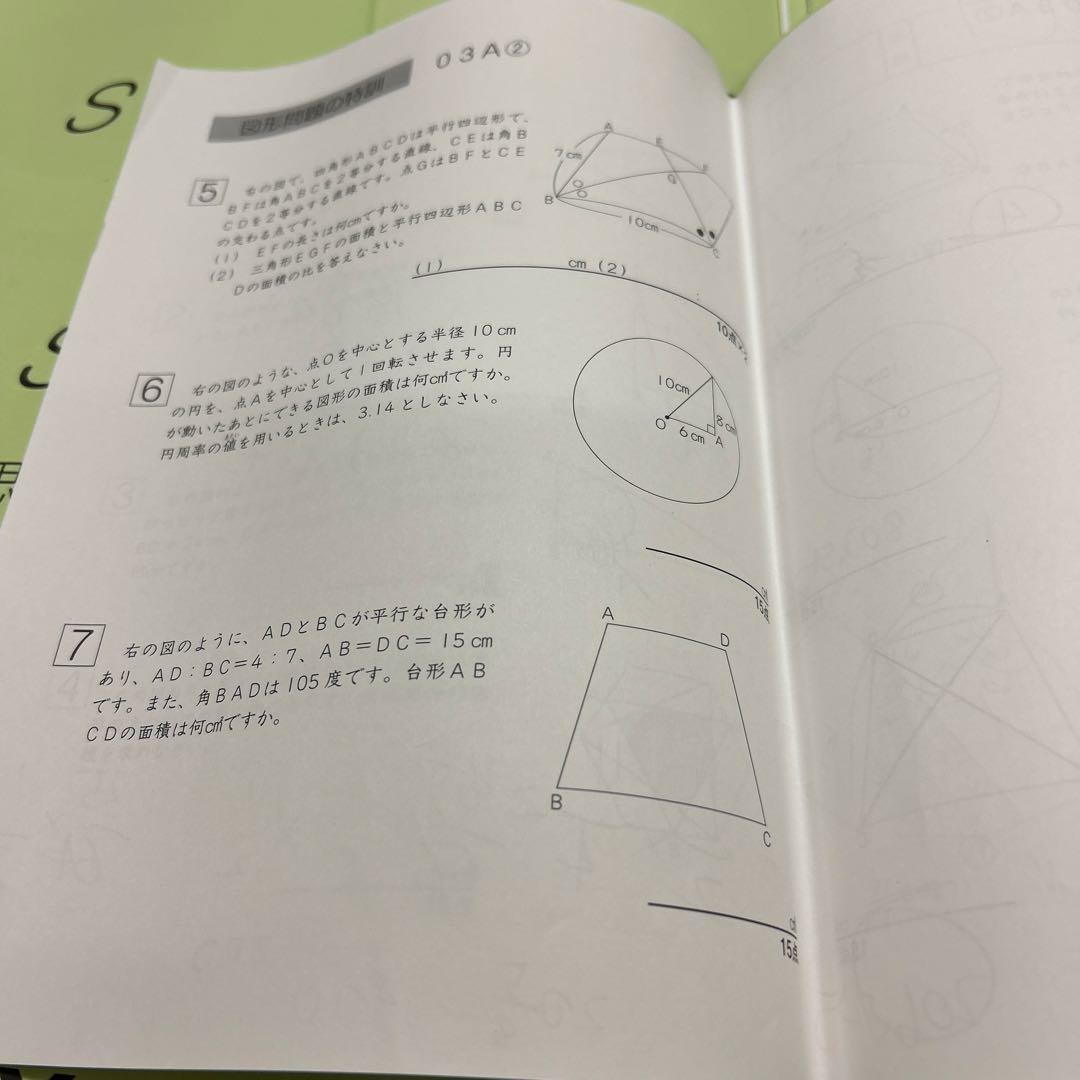 S
03A②
図形問題の特訓
5 右の図で、四角形ABCDは平行四辺形で、
BFは角ABCを2等分する直線、CEは角B
CDを2等分する直線です。点GはBFとCE
の交わる点です。
(1) EFの長さは何cmですか。
(2) 三角形EGFの面積と平行四辺形ABC
Dの面積の比を答えなさい。
A
E
F
7cm
G
B
10cm
C
(1) cm (2) :
10点
6 右の図のような、点Oを中心とする半径10cm
の円を、点Aを中心として1回転させます。円
が動いたあとにできる図形の面積は何cm²ですか。
円周率の値を用いるときは、3.14としなさい。
10cm
8cm
O 6cm A
15点
7 右の図のように、ADとBCが平行な台形が
あり、AD:BC=4:7、AB=DC=15cm
です。また、角BADは105度です。台形AB
CDの面積は何cm²ですか。
A
D
B
C
15点